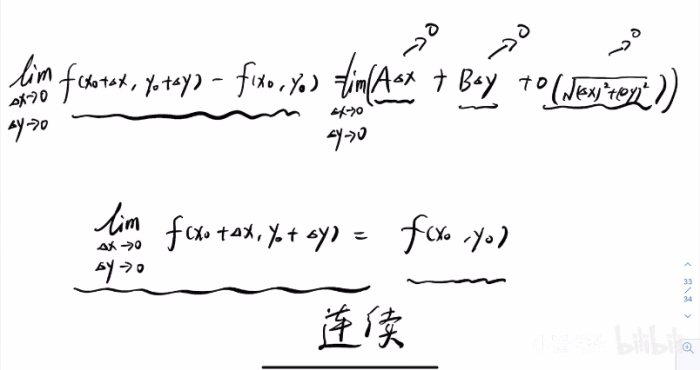 lim Δx→0 Δy→0 f(x₀+Δx, y₀+Δy) - f(x₀, y₀) = lim Δx→0 Δy→0 (AΔx →0 + BΔy →0 + o(√(Δx)²+(Δy)²) →0)
lim Δx→0 Δy→0 f(x₀+Δx, y₀+Δy) = f(x₀, y₀)
连续
33
/
34
bilibili